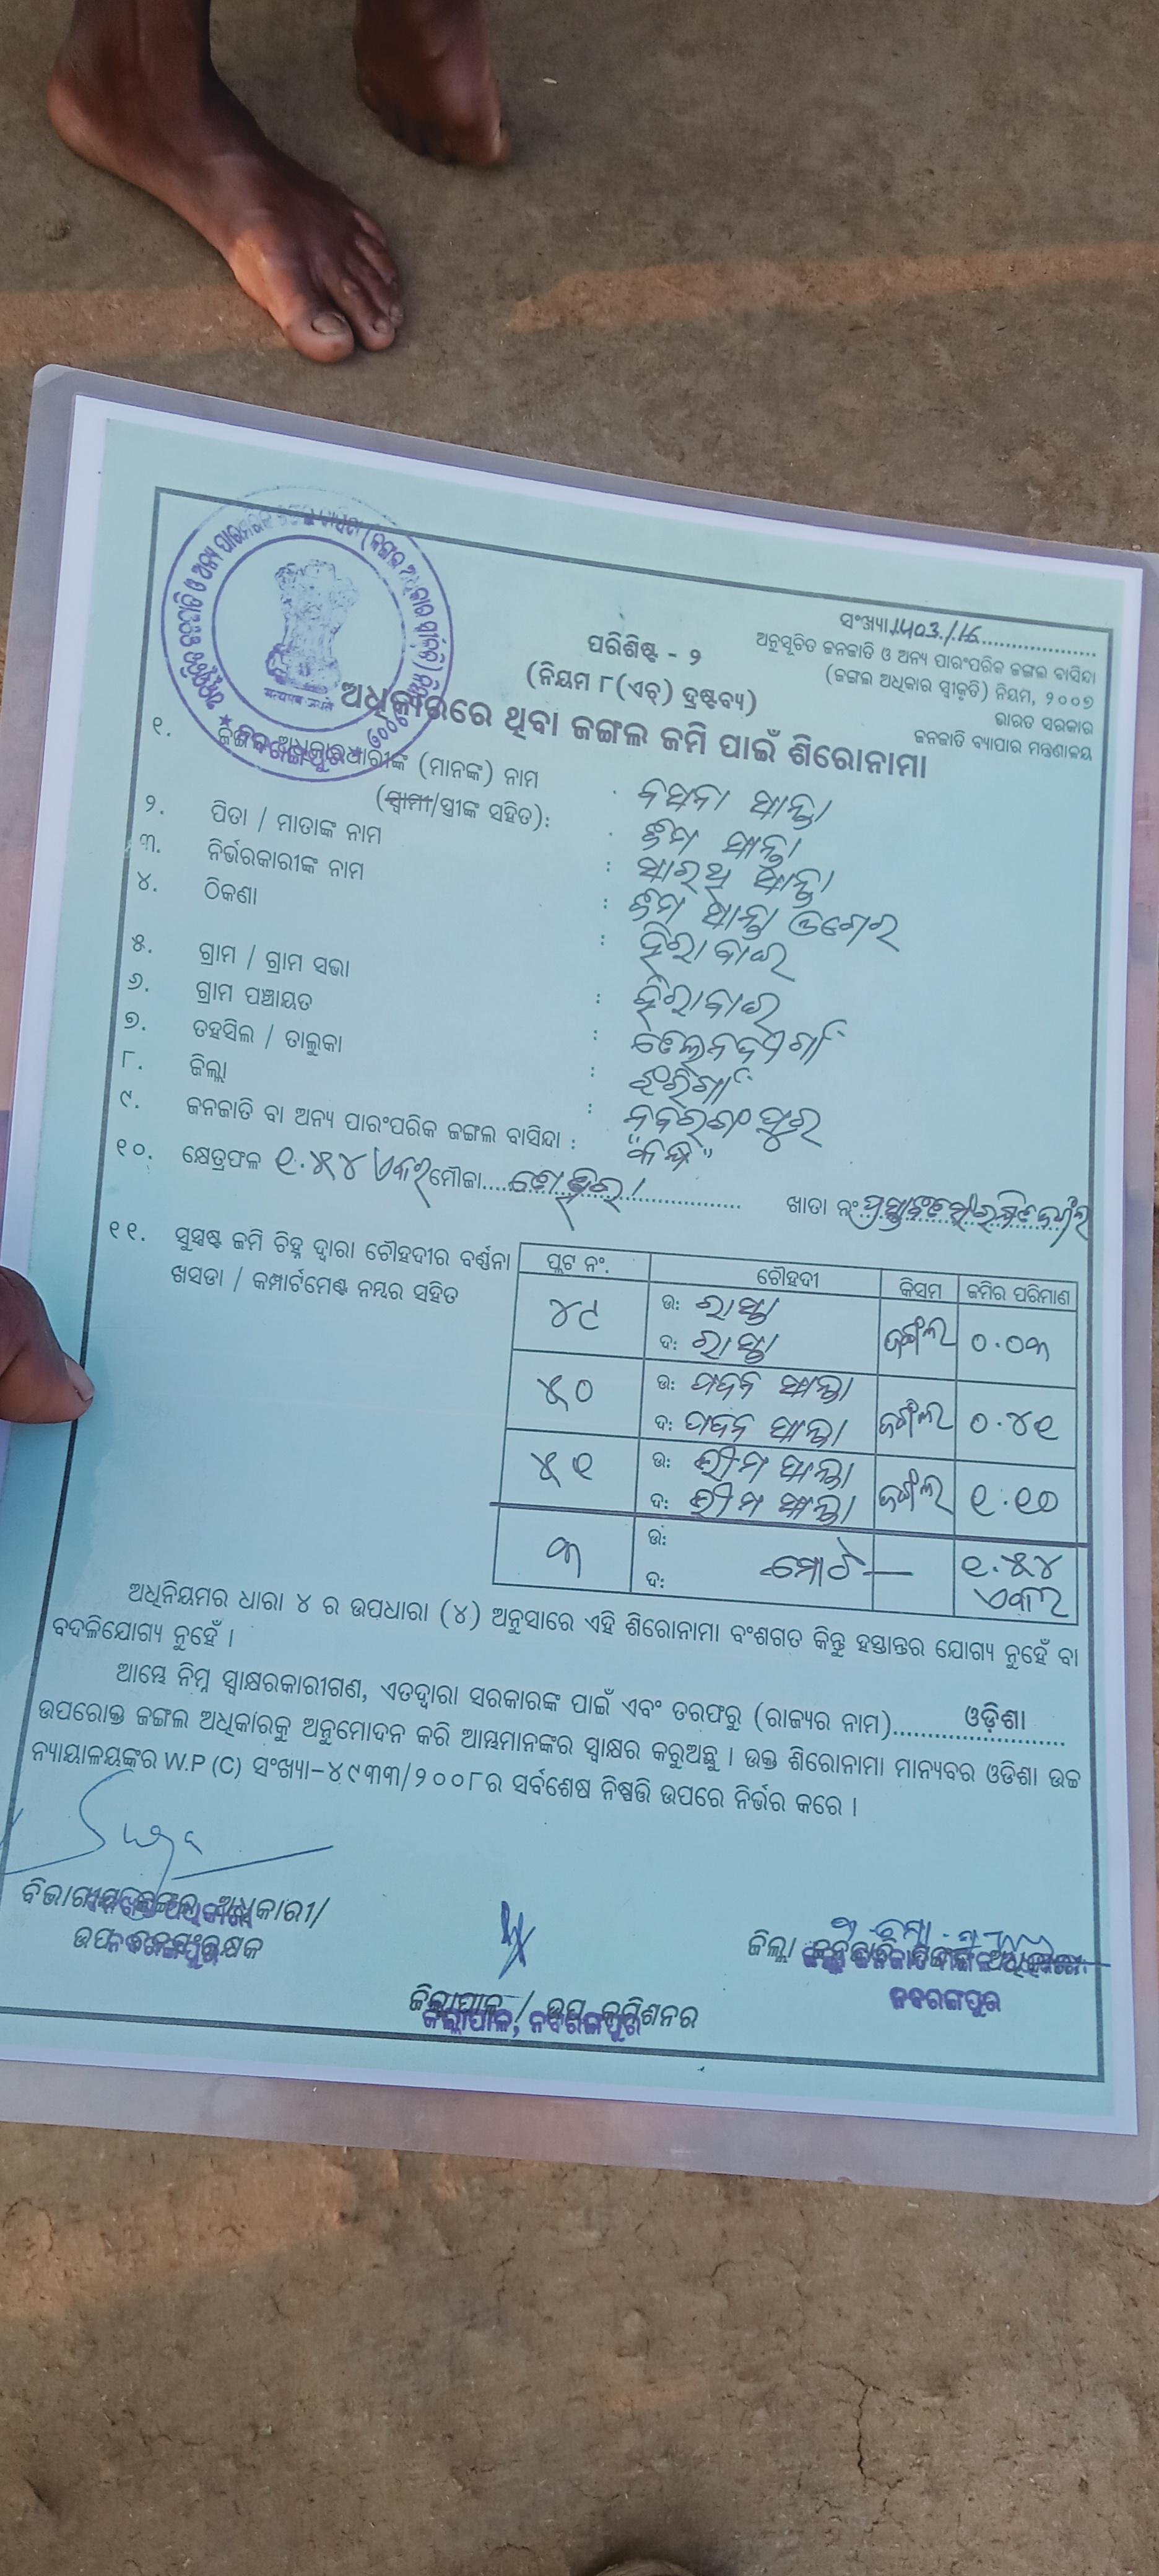 ସଂଖ୍ୟା 1403/16
ଅନୁସୂଚିତ ଜନଜାତି ଓ ଅନ୍ୟ ପାରଂପରିକ ଜଙ୍ଗଲ ବାସିନ୍ଦା
(ଜଙ୍ଗଲ ଅଧିକାର ସ୍ୱୀକୃତି) ନିୟମ, ୨୦୦୭
ଭାରତ ସରକାର
ଜନଜାତି ବ୍ୟାପାର ମନ୍ତ୍ରଣାଳୟ
ପରିଶିଷ୍ଟ - ୨
(ନିୟମ ୮(ଏଚ୍) ଦ୍ରଷ୍ଟବ୍ୟ)
ଅଧିକାରରେ ଥିବା ଜଙ୍ଗଲ ଜମି ପାଇଁ ଶିରୋନାମା
୧. ଜଙ୍ଗଲ ଅଧିକାରଧାରୀଙ୍କ (ମାନଙ୍କ) ନାମ :
(ସ୍ୱାମୀ/ସ୍ତ୍ରୀଙ୍କ ସହିତ):
୨. ପିତା / ମାତାଙ୍କ ନାମ :
୩. ନିର୍ଭରକାରୀଙ୍କ ନାମ :
୪. ଠିକଣା : ହିରାବାଇ
୫. ଗ୍ରାମ / ଗ୍ରାମ ସଭା : ହିରାବାଇ
୬. ଗ୍ରାମ ପଞ୍ଚାୟତ :
୭. ତହସିଲ / ତାଲୁକା : ଝରିଗାଁ
୮. ଜିଲ୍ଲା : ନବରଙ୍ଗପୁର
୯. ଜନଜାତି ବା ଅନ୍ୟ ପାରଂପରିକ ଜଙ୍ଗଲ ବାସିନ୍ଦା :
୧୦. କ୍ଷେତ୍ରଫଳ ୧.୫୪ ଏକର ମୌଜା ଖାତା ନଂ
୧୧. ସୁସ୍ପଷ୍ଟ ଜମି ଚିହ୍ନ ଦ୍ୱାରା ଚୌହଦୀର ବର୍ଣ୍ଣନା
ଖସଡା / କମ୍ପାର୍ଟମେଣ୍ଟ ନମ୍ବର ସହିତ
ପ୍ଲଟ ନଂ. ଚୌହଦୀ କିସମ ଜମିର ପରିମାଣ
୪୯ ଉ: ରାସ୍ତା ଜଙ୍ଗଲ ୦.୦୩
ଦ: ରାସ୍ତା
୫୦ ଉ: ଜଙ୍ଗଲ ୦.୪୧
ଦ:
୫୧ ଉ: ଭୀମ ଜଙ୍ଗଲ ୧.୧୦
ଦ: ଭୀମ
୩ ଉ: ମୋଟ ୧.୫୪
ଦ: ଏକର
ଅଧିନିୟମର ଧାରା ୪ ର ଉପଧାରା (୪) ଅନୁସାରେ ଏହି ଶିରୋନାମା ବଂଶଗତ କିନ୍ତୁ ହସ୍ତାନ୍ତର ଯୋଗ୍ୟ ନୁହେଁ ବା
ବଦଳିଯୋଗ୍ୟ ନୁହେଁ ।
ଆମ୍ଭେ ନିମ୍ନ ସ୍ୱାକ୍ଷରକାରୀଗଣ, ଏତଦ୍ୱାରା ସରକାରଙ୍କ ପାଇଁ ଏବଂ ତରଫରୁ (ରାଜ୍ୟର ନାମ) ଓଡ଼ିଶା
ଉପରୋକ୍ତ ଜଙ୍ଗଲ ଅଧିକାରକୁ ଅନୁମୋଦନ କରି ଆମ୍ଭମାନଙ୍କର ସ୍ୱାକ୍ଷର କରୁଅଛୁ । ଉକ୍ତ ଶିରୋନାମା ମାନ୍ୟବର ଓଡିଶା ଉଚ୍ଚ
ନ୍ୟାୟାଳୟଙ୍କର W.P (C) ସଂଖ୍ୟା-୪୯୩୩/୨୦୦୮ର ସର୍ବଶେଷ ନିଷ୍ପତ୍ତି ଉପରେ ନିର୍ଭର କରେ ।
ବିଭାଗୀୟ ଜଙ୍ଗଲ ଅଧିକାରୀ/
ଉପ ବନସଂରକ୍ଷକ
ଜିଲ୍ଲାପାଳ / ଉପ କମିଶନର
ଜିଲ୍ଲାପାଳ, ନବରଙ୍ଗପୁର
ଜିଲ୍ଲା
ନବରଙ୍ଗପୁର